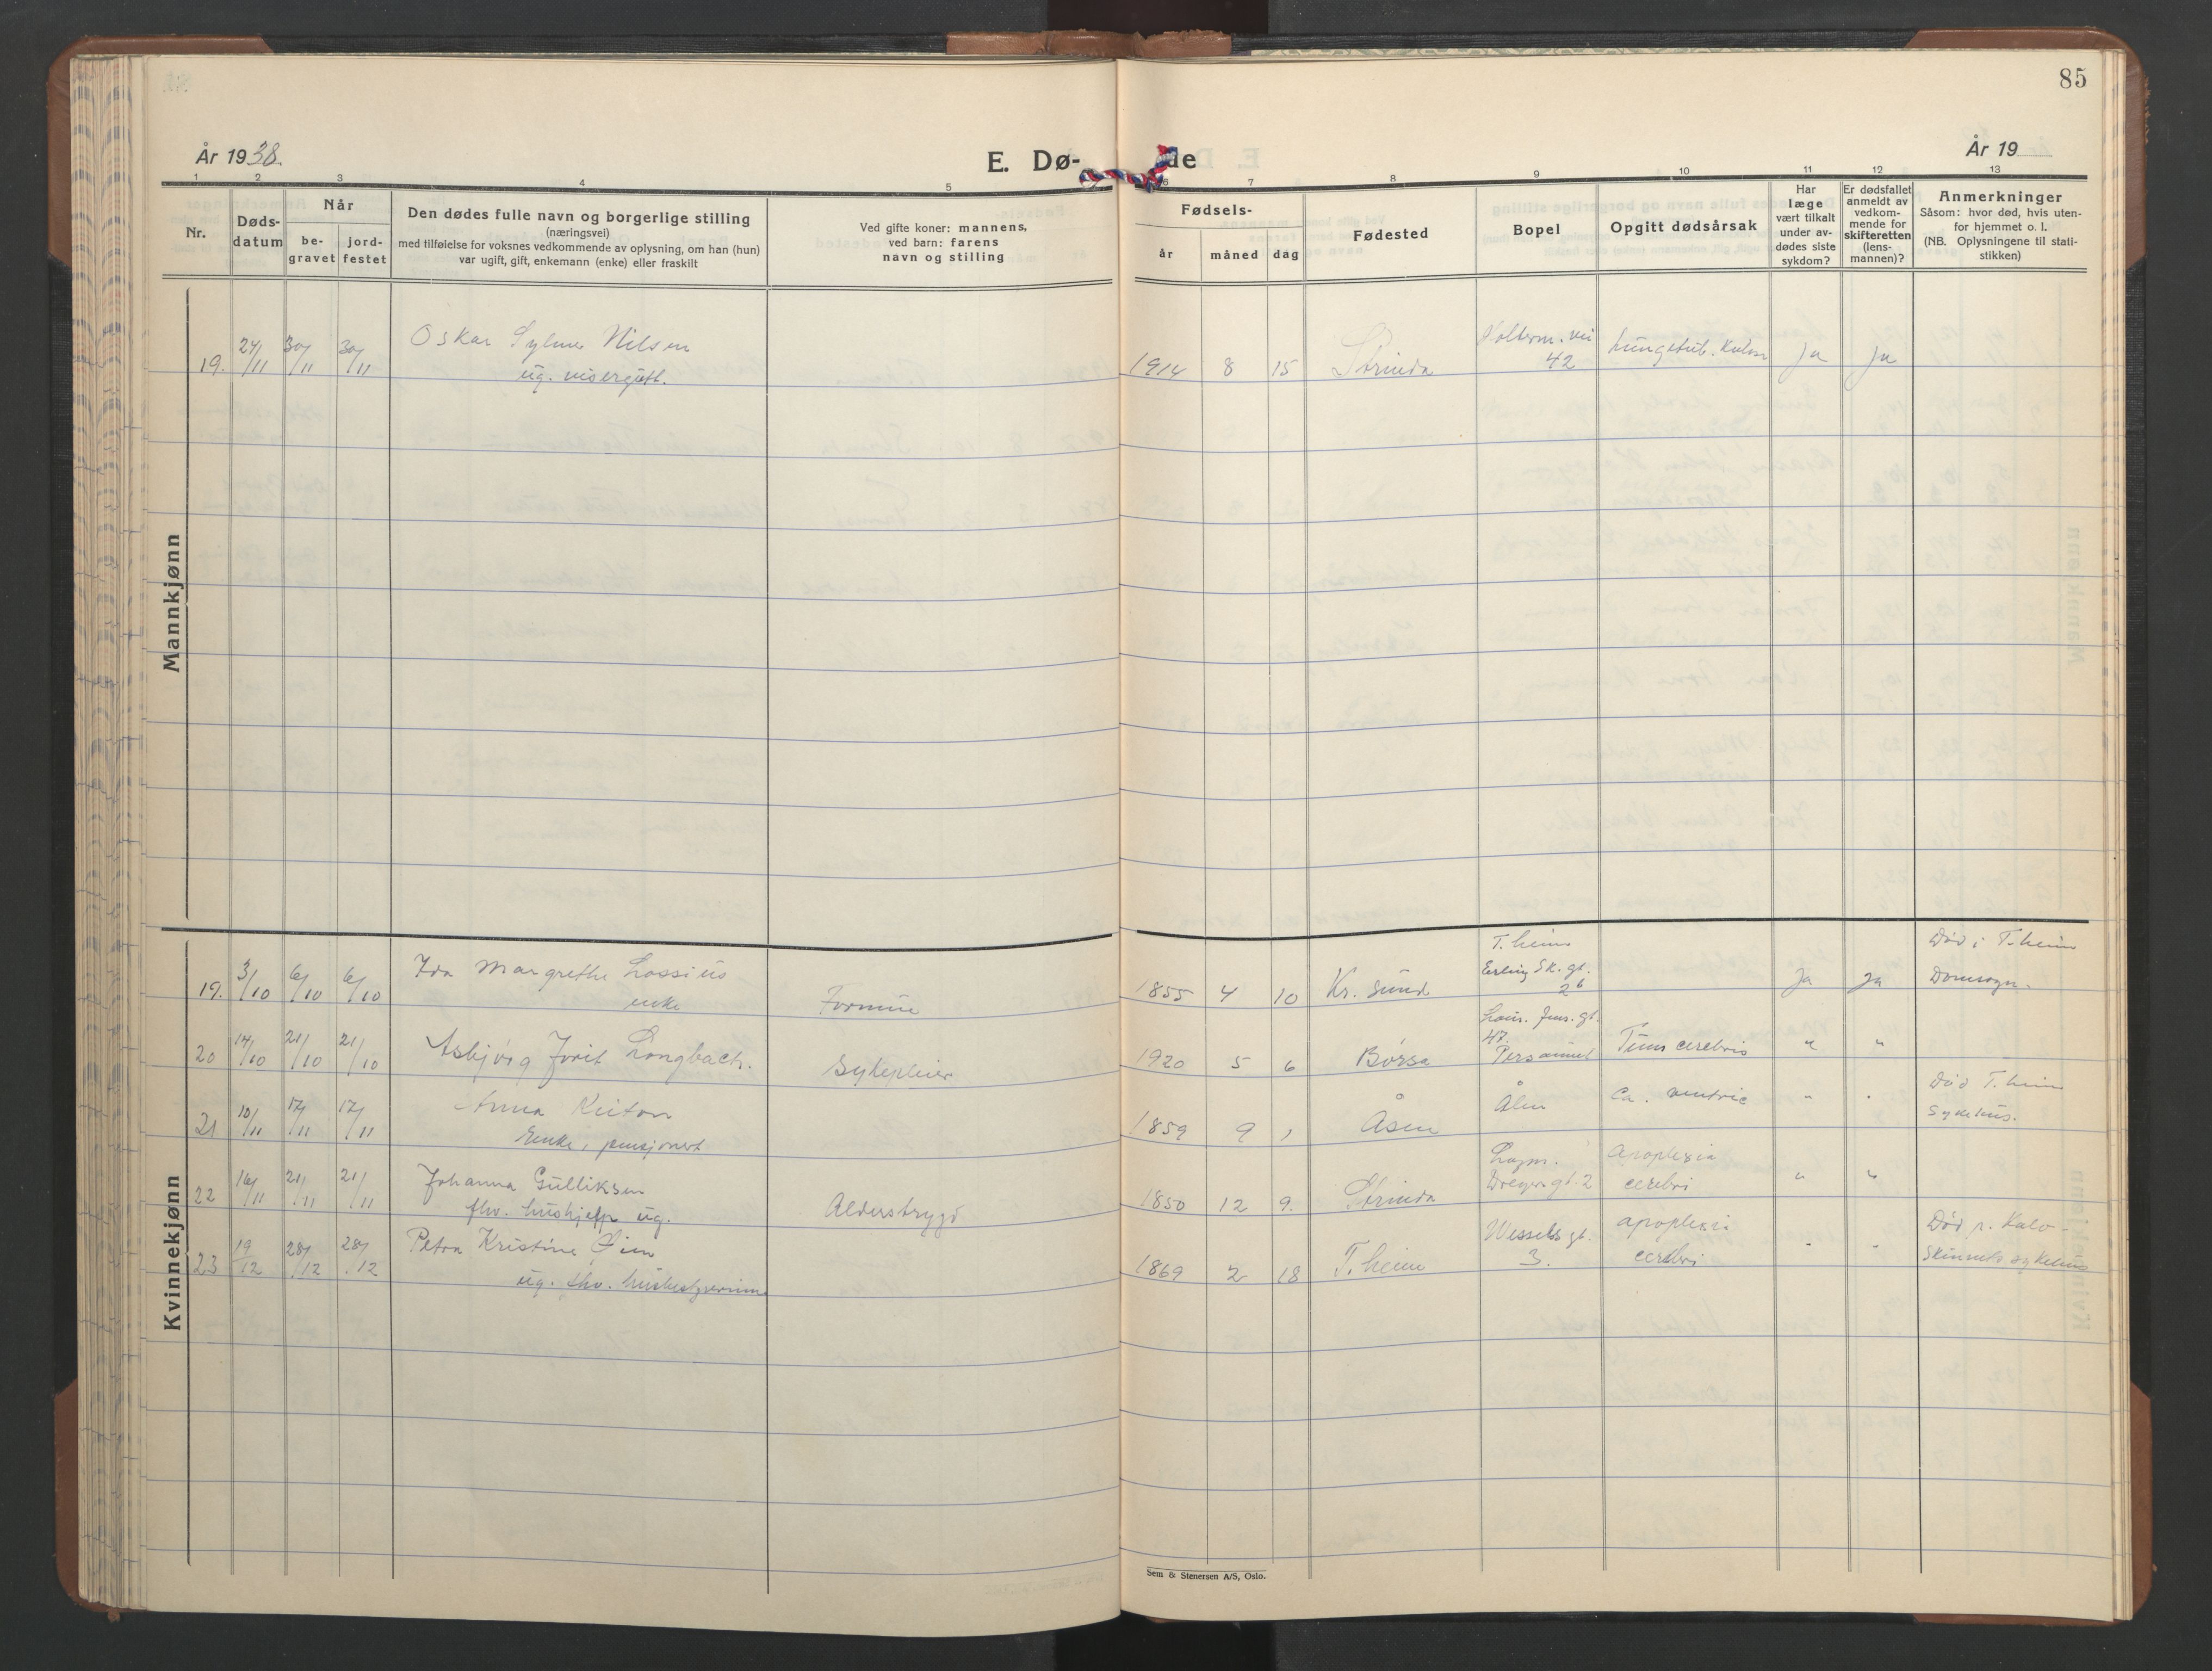 85
År 1938.
E. Dø-
de
År 19
1 2 3 4 5 6 7 8 9 10 11 12 13
Nr.
Døds-
datum
Når
be-
gravet
jord-
festet
Den dødes fulle navn og borgerlige stilling
(næringsvei)
med tilføielse for voksnes vedkommende av oplysning, om han (hun)
var ugift, gift, enkemann (enke) eller fraskilt
Ved gifte koner: mannens,
ved barn: farens
navn og stilling
Fødsels-
år
måned
dag
Fødested
Bopel
Opgitt dødsårsak
Har
læge
vært tilkalt
under av-
dødes siste
sykdom?
Er dødsfallet
anmeldt av
vedkom-
mende for
skifteretten
(lens-
mannen)?
Anmerkninger
Såsom: hvor død, hvis uten-
for hjemmet o. l.
(NB. Oplysningene til stati-
stikken)
Mannkjønn
19. 24/11 30/11 30/11 Oskar Nilsen
ug. visergutt.
1914 8 15 Strinda
42
ja ja
Kvinnekjønn
19. 3/10 6/10 6/10 Ida Margrethe Lossius
enke
Formue
1855 4 10 Kr. sund
T.heim
Erling Sk. gt.
26
Ja Ja
Død i T.heim
Domsogn.
20 17/10 21/10 21/10 Asbjørg Jorit Langbach.
Sykepleier
1920 5 6 Børsa
47.
Tum cerebris
" "
21 10/11 17/11 17/11 Anna
Enke, pensjonert
1859 9 1 Åsen
Ålen
Ca. ventric
" "
Død T.heim
Sykehus.
22 16/11 21/11 21/11 Johanna Gulliksen
fhv. hushjelp ug.
Alderstrygd
1850 12 9. Strinda
Dreyers gt. 2
Apoplexia
cerebri
" "
23 19/12 28/12 28/12 Petra Kristine Øien
ug. fhv. husbestyrerinne
1869 2 18 T.heim
Wessels gt.
3.
apoplexi
cerebri
" "
Død p. Kalv-
skinnets sykehus
Sem & Stenersen A/S, Oslo.